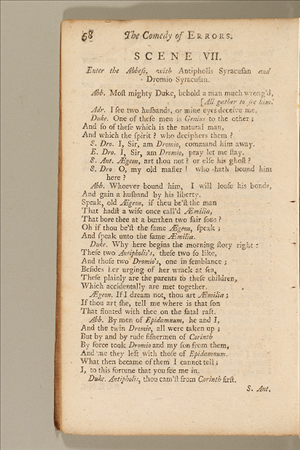 58 The Comedy of ERRORS.
SCENE VII.
Enter the Abbess, with Antipholis Syracusan and
Dromio Syracusan.
Abb. Most mighty Duke, behold a man much wrong'd.
[All gather to see him.
Adr. I see two husbands, or mine eyes deceive me.
Duke. One of these men is Genius to the other;
And so of these which is the natural man,
And which the spirit? who deciphers them?
S. Dro. I, Sir, am Dromio, command him away.
E. Dro. I, Sir, am Dromio, pray let me stay.
S. Ant. Ægeon, art thou not? or else his ghost?
S. Dro O, my old master! who hath bound him
here?
Abb. Whoever bound him, I will loose his bonds,
And gain a husband by his liberty.
Speak, old Ægeon, if thou be'st the man
That hadst a wife once call'd Æmilia,
That bore thee at a burthen two fair sons?
Oh if thou be'st the same Ægeon, speak;
And speak unto the same Æmilia.
Duke. Why here begins the morning story right:
These two Antipholis's, these two so like,
And those two Dromio's, one in semblance;
Besides her urging of her wrack at sea,
These plainly are the parents to these children,
Which accidentally are met together.
Ægeon. If I dream not, thou art Æmilia;
If thou art she, tell me where is that son
That floated with thee on the fatal raft.
Abb. By men of Epidamnum, he and I,
And the twin Dromio, all were taken up;
But by and by rude fishermen of Corinth
By force took Dromio and my son from them,
And me they left with those of Epidamnum.
What then became of them I cannot tell;
I, to this fortune that you see me in.
Duke. Antipholis, thou cam'st from Corinth first.
S. Ant.